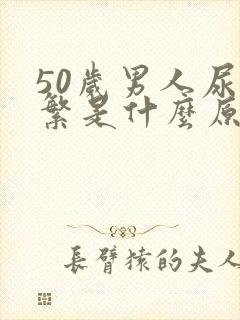 50歲男人尿
繁是什麼原
長臂猿的夫人